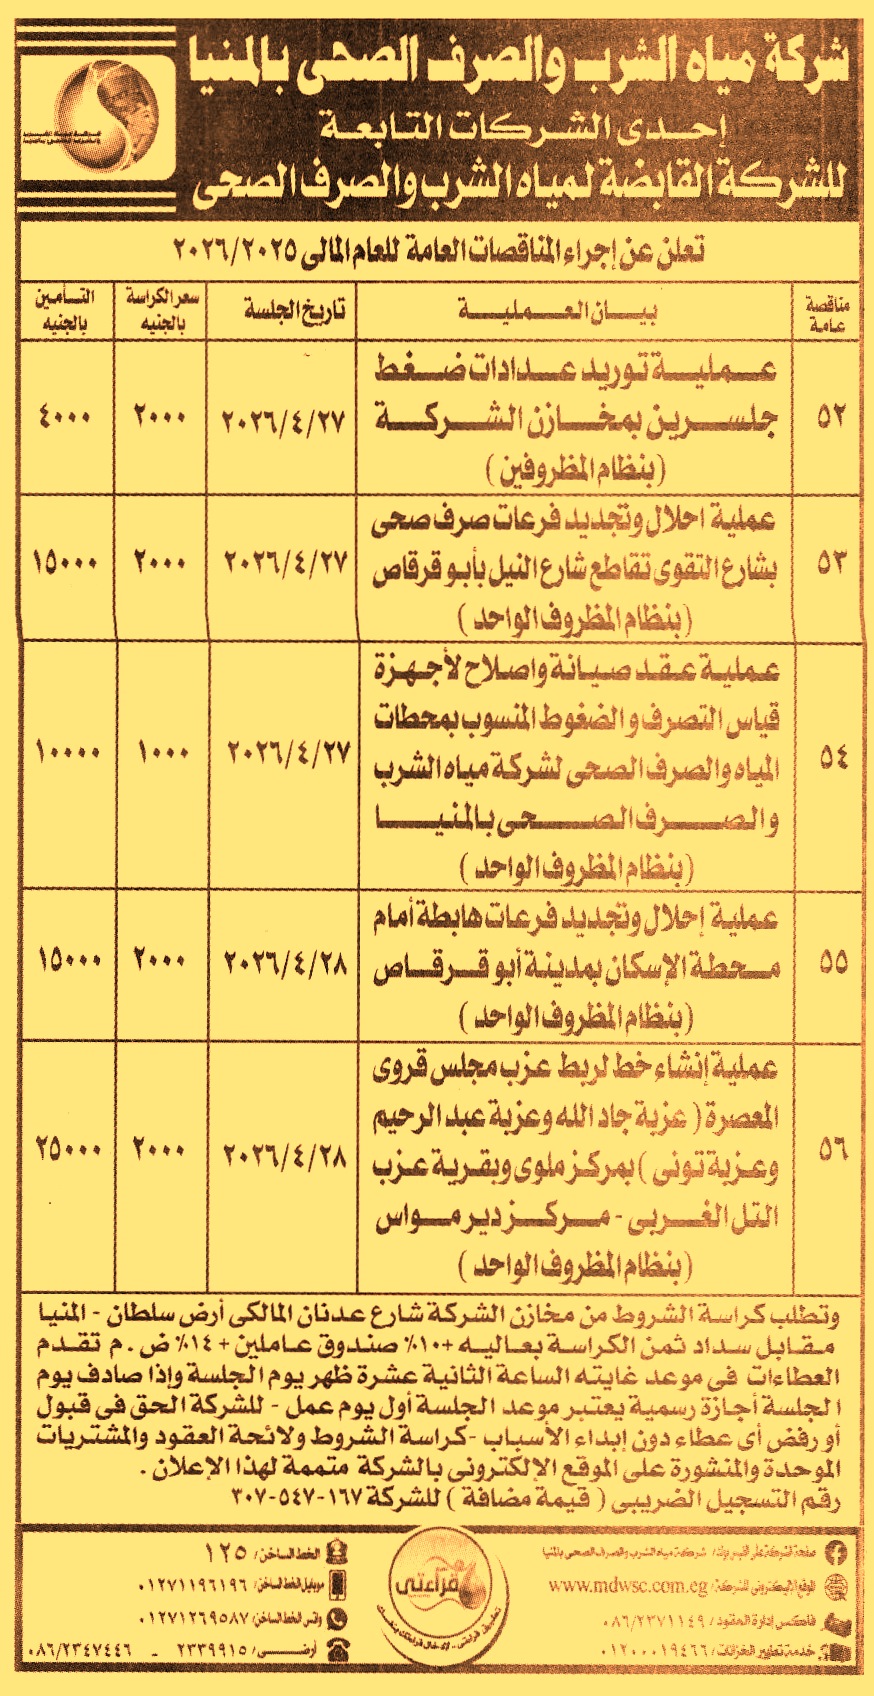 شركة مياه الشرب والصرف الصحى بالمنيا
إحدى الشركات التابعة
للشركة القابضة لمياه الشرب والصرف الصحى
تعلن عن إجراء المناقصات العامة للعام المالى ٢٠٢٦/٢٠٢٥
مناقصة عامة
بيان العملية
تاريخ الجلسة
سعر الكراسة بالجنيه
التأمين بالجنيه
٥٢
عملية توريد عدادات ضغط
جلسرين بمخازن الشركة
(بنظام المظروفين)
٢٠٢٦/٤/٢٧
٢٠٠٠
٤٠٠٠
٥٣
عملية احلال وتجديد فرعات صرف صحى
بشارع التقوى تقاطع شارع النيل بأبو قرقاص
(بنظام المظروف الواحد)
٢٠٢٦/٤/٢٧
٢٠٠٠
١٥٠٠٠
٥٤
عملية عقد صيانة واصلاح لأجهزة
قياس التصرف والضغوط المنسوب بمحطات
المياه والصرف الصحى لشركة مياه الشرب
والصرف الصحى بالمنيا
(بنظام المظروف الواحد)
٢٠٢٦/٤/٢٧
١٠٠٠
١٠٠٠٠
٥٥
عملية إحلال وتجديد فرعات هابطة أمام
محطة الإسكان بمدينة أبو قرقاص
(بنظام المظروف الواحد)
٢٠٢٦/٤/٢٨
٢٠٠٠
١٥٠٠٠
٥٦
عملية إنشاء خط لربط عزب مجلس قروى
المعصرة (عزبة جاد الله وعزبة عبد الرحيم
وعزبة تونى) بمركز ملوى وبقرية عزب
التل الغربى - مركز دير مواس
(بنظام المظروف الواحد)
٢٠٢٦/٤/٢٨
٢٠٠٠
٢٥٠٠٠
وتطلب كراسة الشروط من مخازن الشركة شارع عدنان المالكى أرض سلطان - المنيا
مقابل سداد ثمن الكراسة بعاليه +١٠٪ صندوق عاملين + ١٤٪ ض . م تقدم
العطاءات فى موعد غايته الساعة الثانية عشرة ظهر يوم الجلسة وإذا صادف يوم
الجلسة أجازة رسمية يعتبر موعد الجلسة أول يوم عمل - للشركة الحق فى قبول
أو رفض أى عطاء دون إبداء الأسباب -كراسة الشروط ولائحة العقود والمشتريات
الموحدة والمنشورة على الموقع الإلكترونى بالشركة متممة لهذا الإعلان .
رقم التسجيل الضريبى (قيمة مضافة) للشركة ١٦٧-٥٤٧-٣٠٧
صفحة الشركة على الفيس بوك/ شركة مياه الشرب والصرف الصحى بالمنيا
الموقع الإليكترونى للشركة/ www.mdwsc.com.eg
فاكس إدارة العقود/ ٠٨٦/٢٣٧١١٤٩
خدمة تطهير الخزانات/ ٠١٢٠٠٠١٩٤٦٦
قراءتى
الخط الساخن/ ١٢٥
موبايل الخط الساخن/ ٠١٢٧١١٩٦١٩٦
واتس الخط الساخن/ ٠١٢٧١٢٦٩٥٨٧
أرضى/ ٢٣٣٩٩١٥ - ٠٨٦/٢٣٤٧٤٤٦